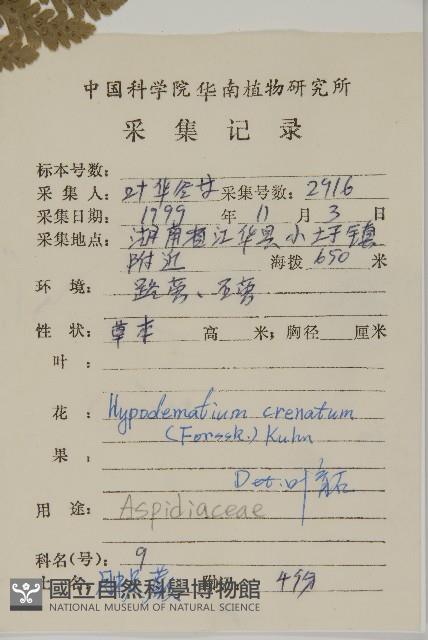 中国科学院华南植物研究所
采集记录
标本号数:
采集人: 叶华谷 采集号数: 2916
采集日期: 1999 年 11 月 3 日
采集地点: 湖南省江华县小圩镇
附近 海拨 690 米
环境: 路旁、石旁
性状: 草本 高 米; 胸径 厘米
叶:
花: Hypodematium crenatum
(Forssk.) Kuhn
果:
Det. 叶
用途: Aspidiaceae
科名(号): 9
土名: 附记: 4份
國立自然科學博物館
NATIONAL MUSEUM OF NATURAL SCIENCE